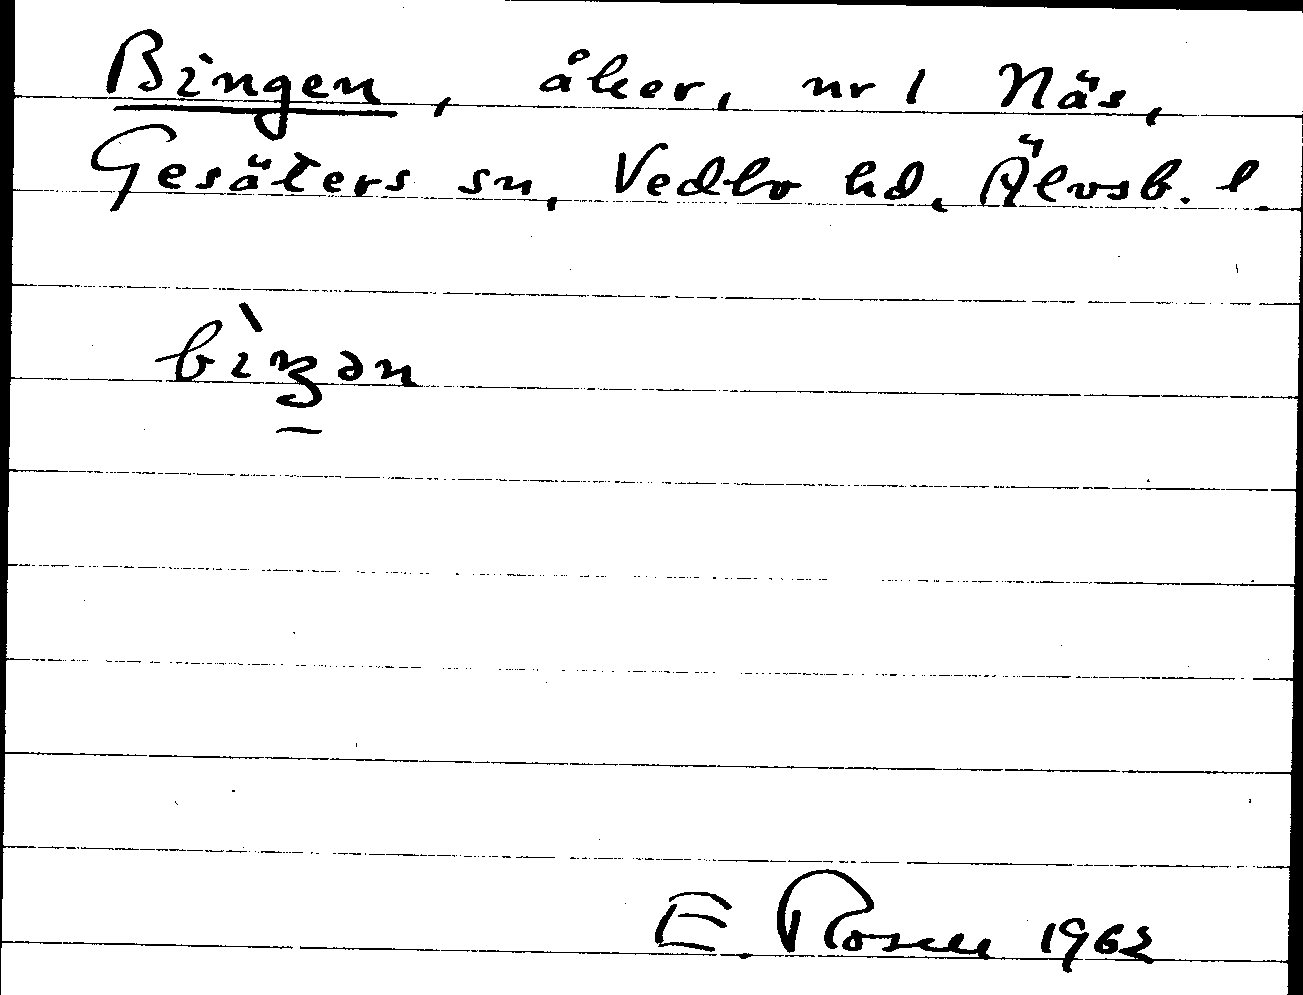 Bingen, åker, nr 1 Näs,
Gesäters sn, Vedbo hd, Älvsb. l.
bìŋən
E. Rosell 1962